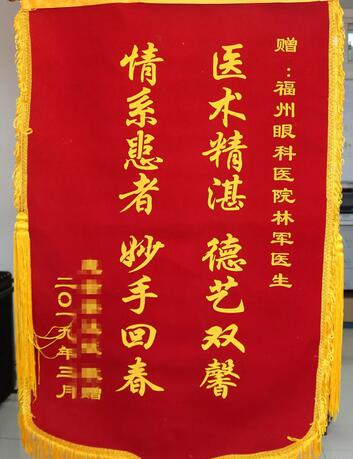 赠：福州眼科医院林军医生
医术精湛 德艺双馨
情系患者 妙手回春
赠
二〇一九年三月